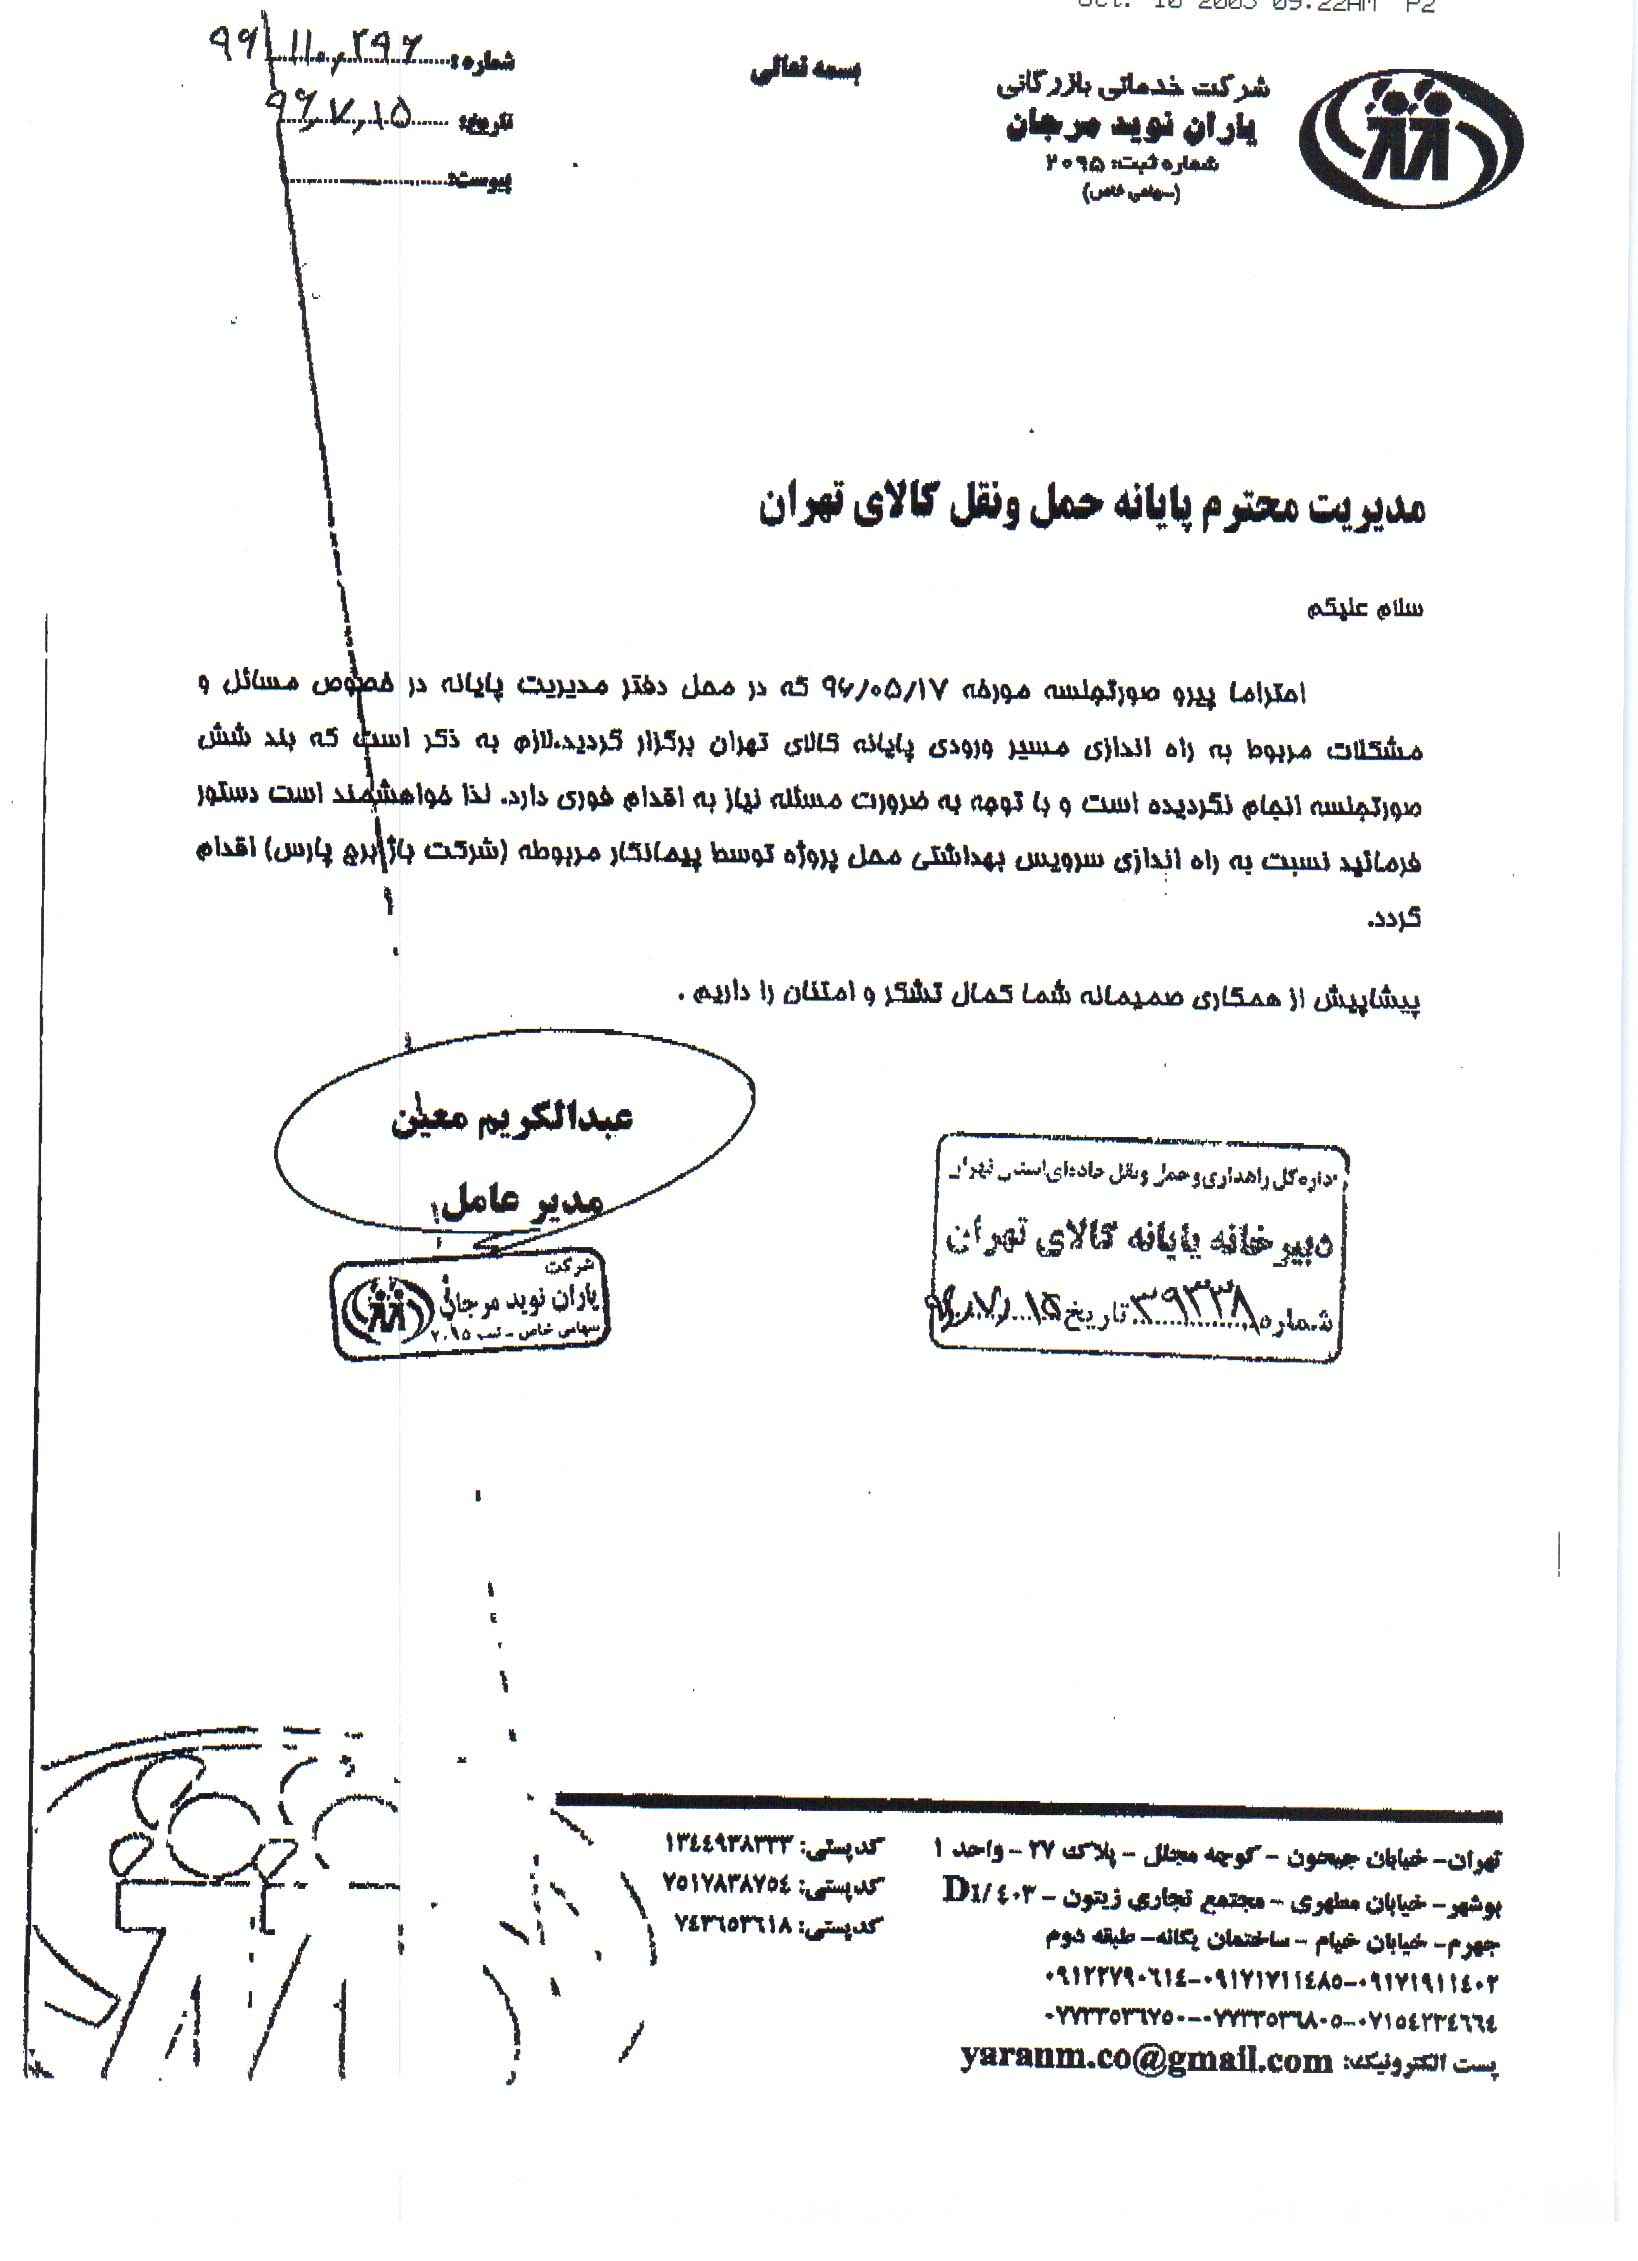 Oct. 10 2003 09:22AM P2
بسمه تعالی
شرکت خدماتی بازرگانی
یاران نوید مرجان
شماره ثبت: ۲۰۹۵
(سهامی خاص)
شماره: ۹۶/۱۱۰,۲۹۶
تاریخ: ۹۶,۷,۱۵
پیوست:
مدیریت محترم پایانه حمل ونقل کالای تهران
سلام علیکم
احتراما پیرو صورتجلسه مورخه ۹۶/۰۵/۱۷ که در محل دفتر مدیریت پایانه در خصوص مسائل و
مشکلات مربوط به راه اندازی مسیر ورودی پایانه کالای تهران برگزار گردید.لازم به ذکر است که بند شش
صورتجلسه انجام نگردیده است و با توجه به ضرورت مسئله نیاز به اقدام فوری دارد. لذا خواهشمند است دستور
فرمائید نسبت به راه اندازی سرویس بهداشتی محل پروژه توسط پیمانکار مربوطه (شرکت باژ برج پارس) اقدام
گردد.
پیشاپیش از همکاری صمیمانه شما کمال تشکر و امتنان را داریم .
عبدالکریم معین
مدیر عامل
شرکت
یاران نوید مرجان
سهامی خاص - ثبت ۲۰۹۵
اداره کل راهداری و حمل و نقل جاده‌ای استان تهران
دبیرخانه پایانه کالای تهران
شماره ۳۹۳۳۸ تاریخ ۹۶/۷/۱۵
تهران- خیابان جیحون - کوچه مجلل - پلاک ۲۷ - واحد ۱ کدپستی: ۱۳٤٤۹۳۸۳۳۳
بوشهر- خیابان مطهری - مجتمع تجاری زیتون - D1/٤۰۳ کدپستی: ۷۵۱۷۸۳۸۷۵٤
جهرم- خیابان خیام - ساختمان یگانه- طبقه دوم کدپستی: ۷٤۳٦۵۳٦۱۸
۰۹۱۲۲۷۹۰٦۱٤-۰۹۱۷۱۷۱۱٤۸۵-۰۹۱۷۱۹۱۱٤۰۲
۰۷۷۳۳۵۳٦۷۵۰-۰۷۷۳۳۵۳٦۸۰۵-۰۷۱۵٤۲۳٤٦٦٤
پست الکترونیک: yaranm.co@gmail.com